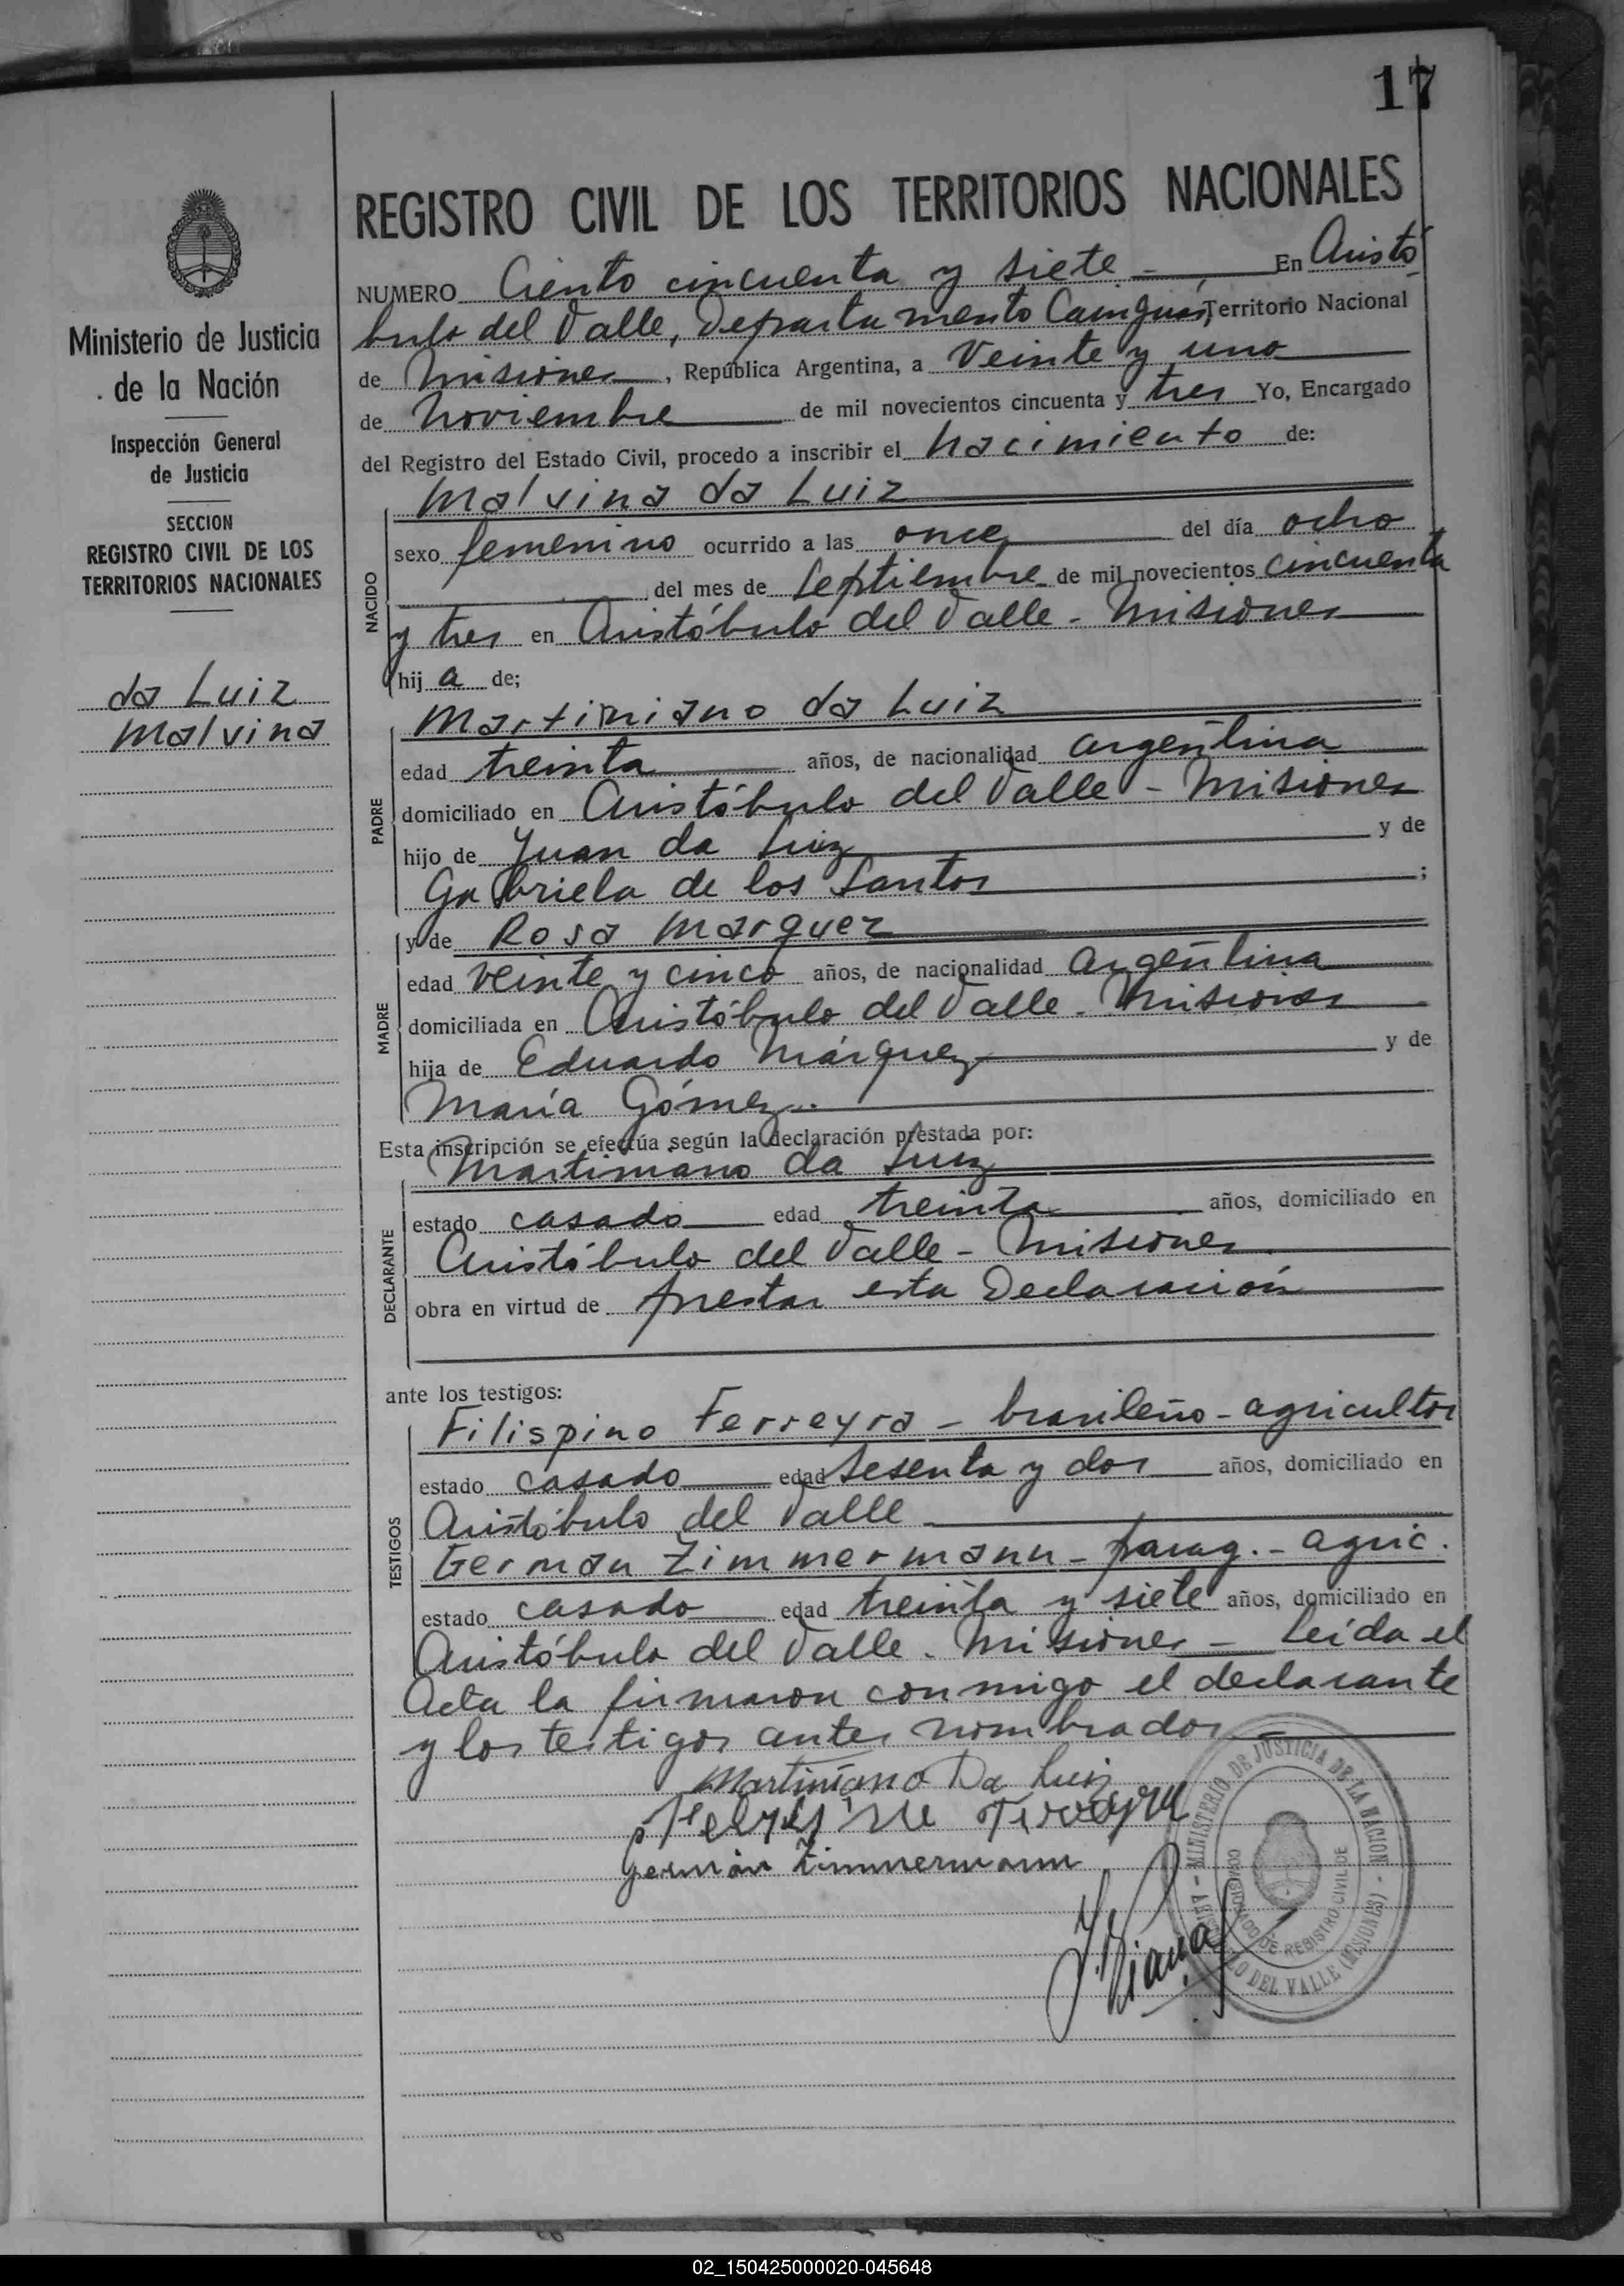 17
REGISTRO CIVIL DE LOS TERRITORIOS NACIONALES
Ministerio de Justicia
de la Nación
Inspección General
de Justicia
SECCION
REGISTRO CIVIL DE LOS
TERRITORIOS NACIONALES
da Luiz
Malvina
NUMERO Ciento cincuenta y siete - En Aristó
bulo del Valle, Departamento Cainguás, Territorio Nacional
de Misiones, República Argentina, a Veinte y uno
de Noviembre de mil novecientos cincuenta y tres Yo, Encargado
del Registro del Estado Civil, procedo a inscribir el Nacimiento de:
NACIDO
Malvina da Luiz
sexo femenino ocurrido a las once del día ocho
del mes de Septiembre de mil novecientos cincuenta
y tres en Aristóbulo del Valle - Misiones
hij a de;
PADRE
Martiniano da Luiz
edad treinta años, de nacionalidad argentina
domiciliado en Aristóbulo del Valle - Misiones
hijo de Juan da Luiz y de
Gabriela de los Santos ;
MADRE
y de Rosa Marquez
edad Veinte y cinco años, de nacionalidad argentina
domiciliada en Aristóbulo del Valle - Misiones
hija de Eduardo Márquez y de
María Gómez.
Esta inscripción se efectúa según la declaración prestada por:
DECLARANTE
Martiniano da Luiz
estado casado edad treinta años, domiciliado en
Aristóbulo del Valle - Misiones
obra en virtud de prestar esta Declaración
ante los testigos:
TESTIGOS
Filispino Ferreyra - brasileño - agricultor
estado casado edad sesenta y dos años, domiciliado en
Aristóbulo del Valle
German Zimmermann - parag. - agric.
estado casado edad treinta y siete años, domiciliado en
Aristóbulo del Valle - Misiones - Leída el
Acta la firmaron conmigo el declarante
y los testigos antes nombrados
Martiniano Da Luiz
Germán Zimmermann
MINISTERIO DE JUSTICIA DE LA NACION
DEL VALLE (MISIONES)
DE REGISTRO CIVIL DE
02_150425000020-045648